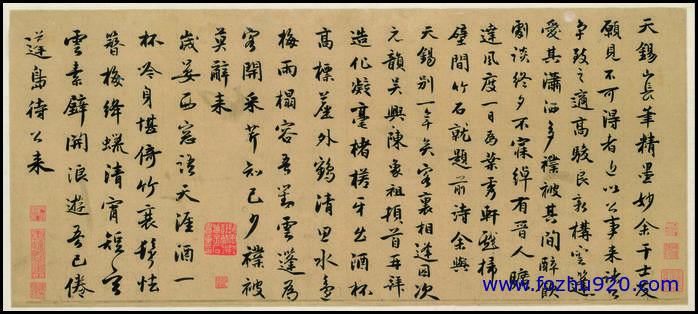 天錫長筆精墨妙余千士友
願見不可得者近以公事來諸公
争致之適高駿民新構雲蓬
愛其瀟洒多襆被其間醉飲
劇談終夕不寐綽有晉人曠
達風度一日為葉秀軒戲掃
壁間竹石就題前詩余與
天錫別一年矣客裏相逢因次
元韻吳興陳象祖頓首再拜
造化凝毫楮槎牙出酒杯
高標崖外鶴清思水邊
梅雨榻容吾雲蓬為
客開采芹知已夕襆被
莫辭來
歲晏西窓話天涯酒一
杯冷身堪倚竹衰鬢怯
簪梅絳蠟清宵短玄
雲素壁開浪遊吾已倦
蓬島待公來
www.fozhu920.com